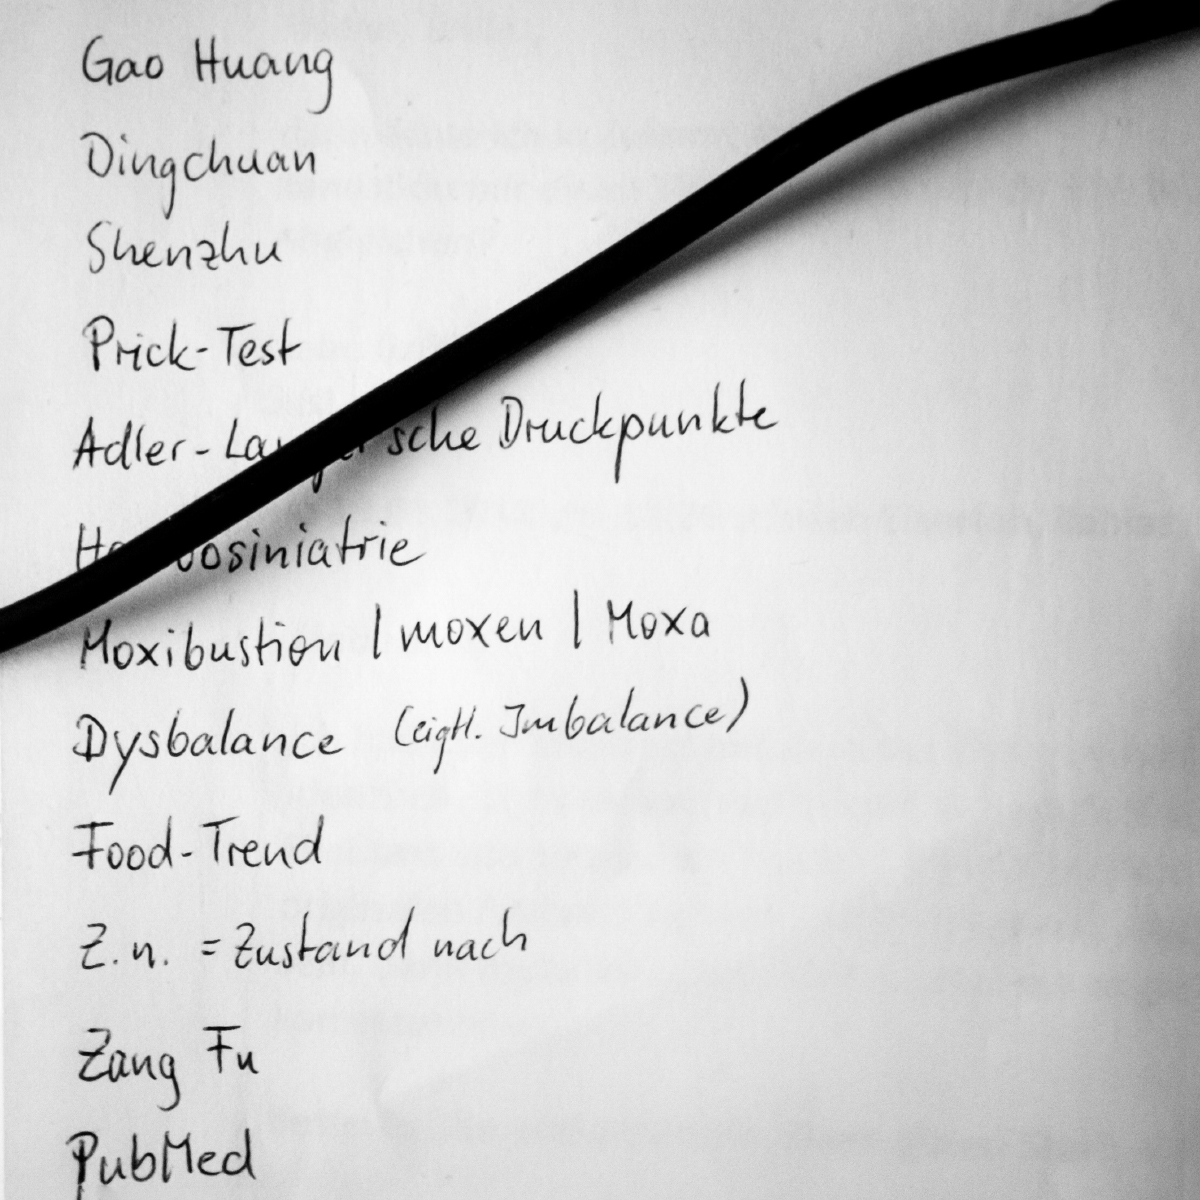 Gao Huang
Dingchuan
Shenzhu
Prick-Test
Druckpunkte
Moxibustion | moxen | Moxa
Dysbalance (eigtl. Imbalance)
Food-Trend
Z.n. = Zustand nach
Zang Fu
PubMed